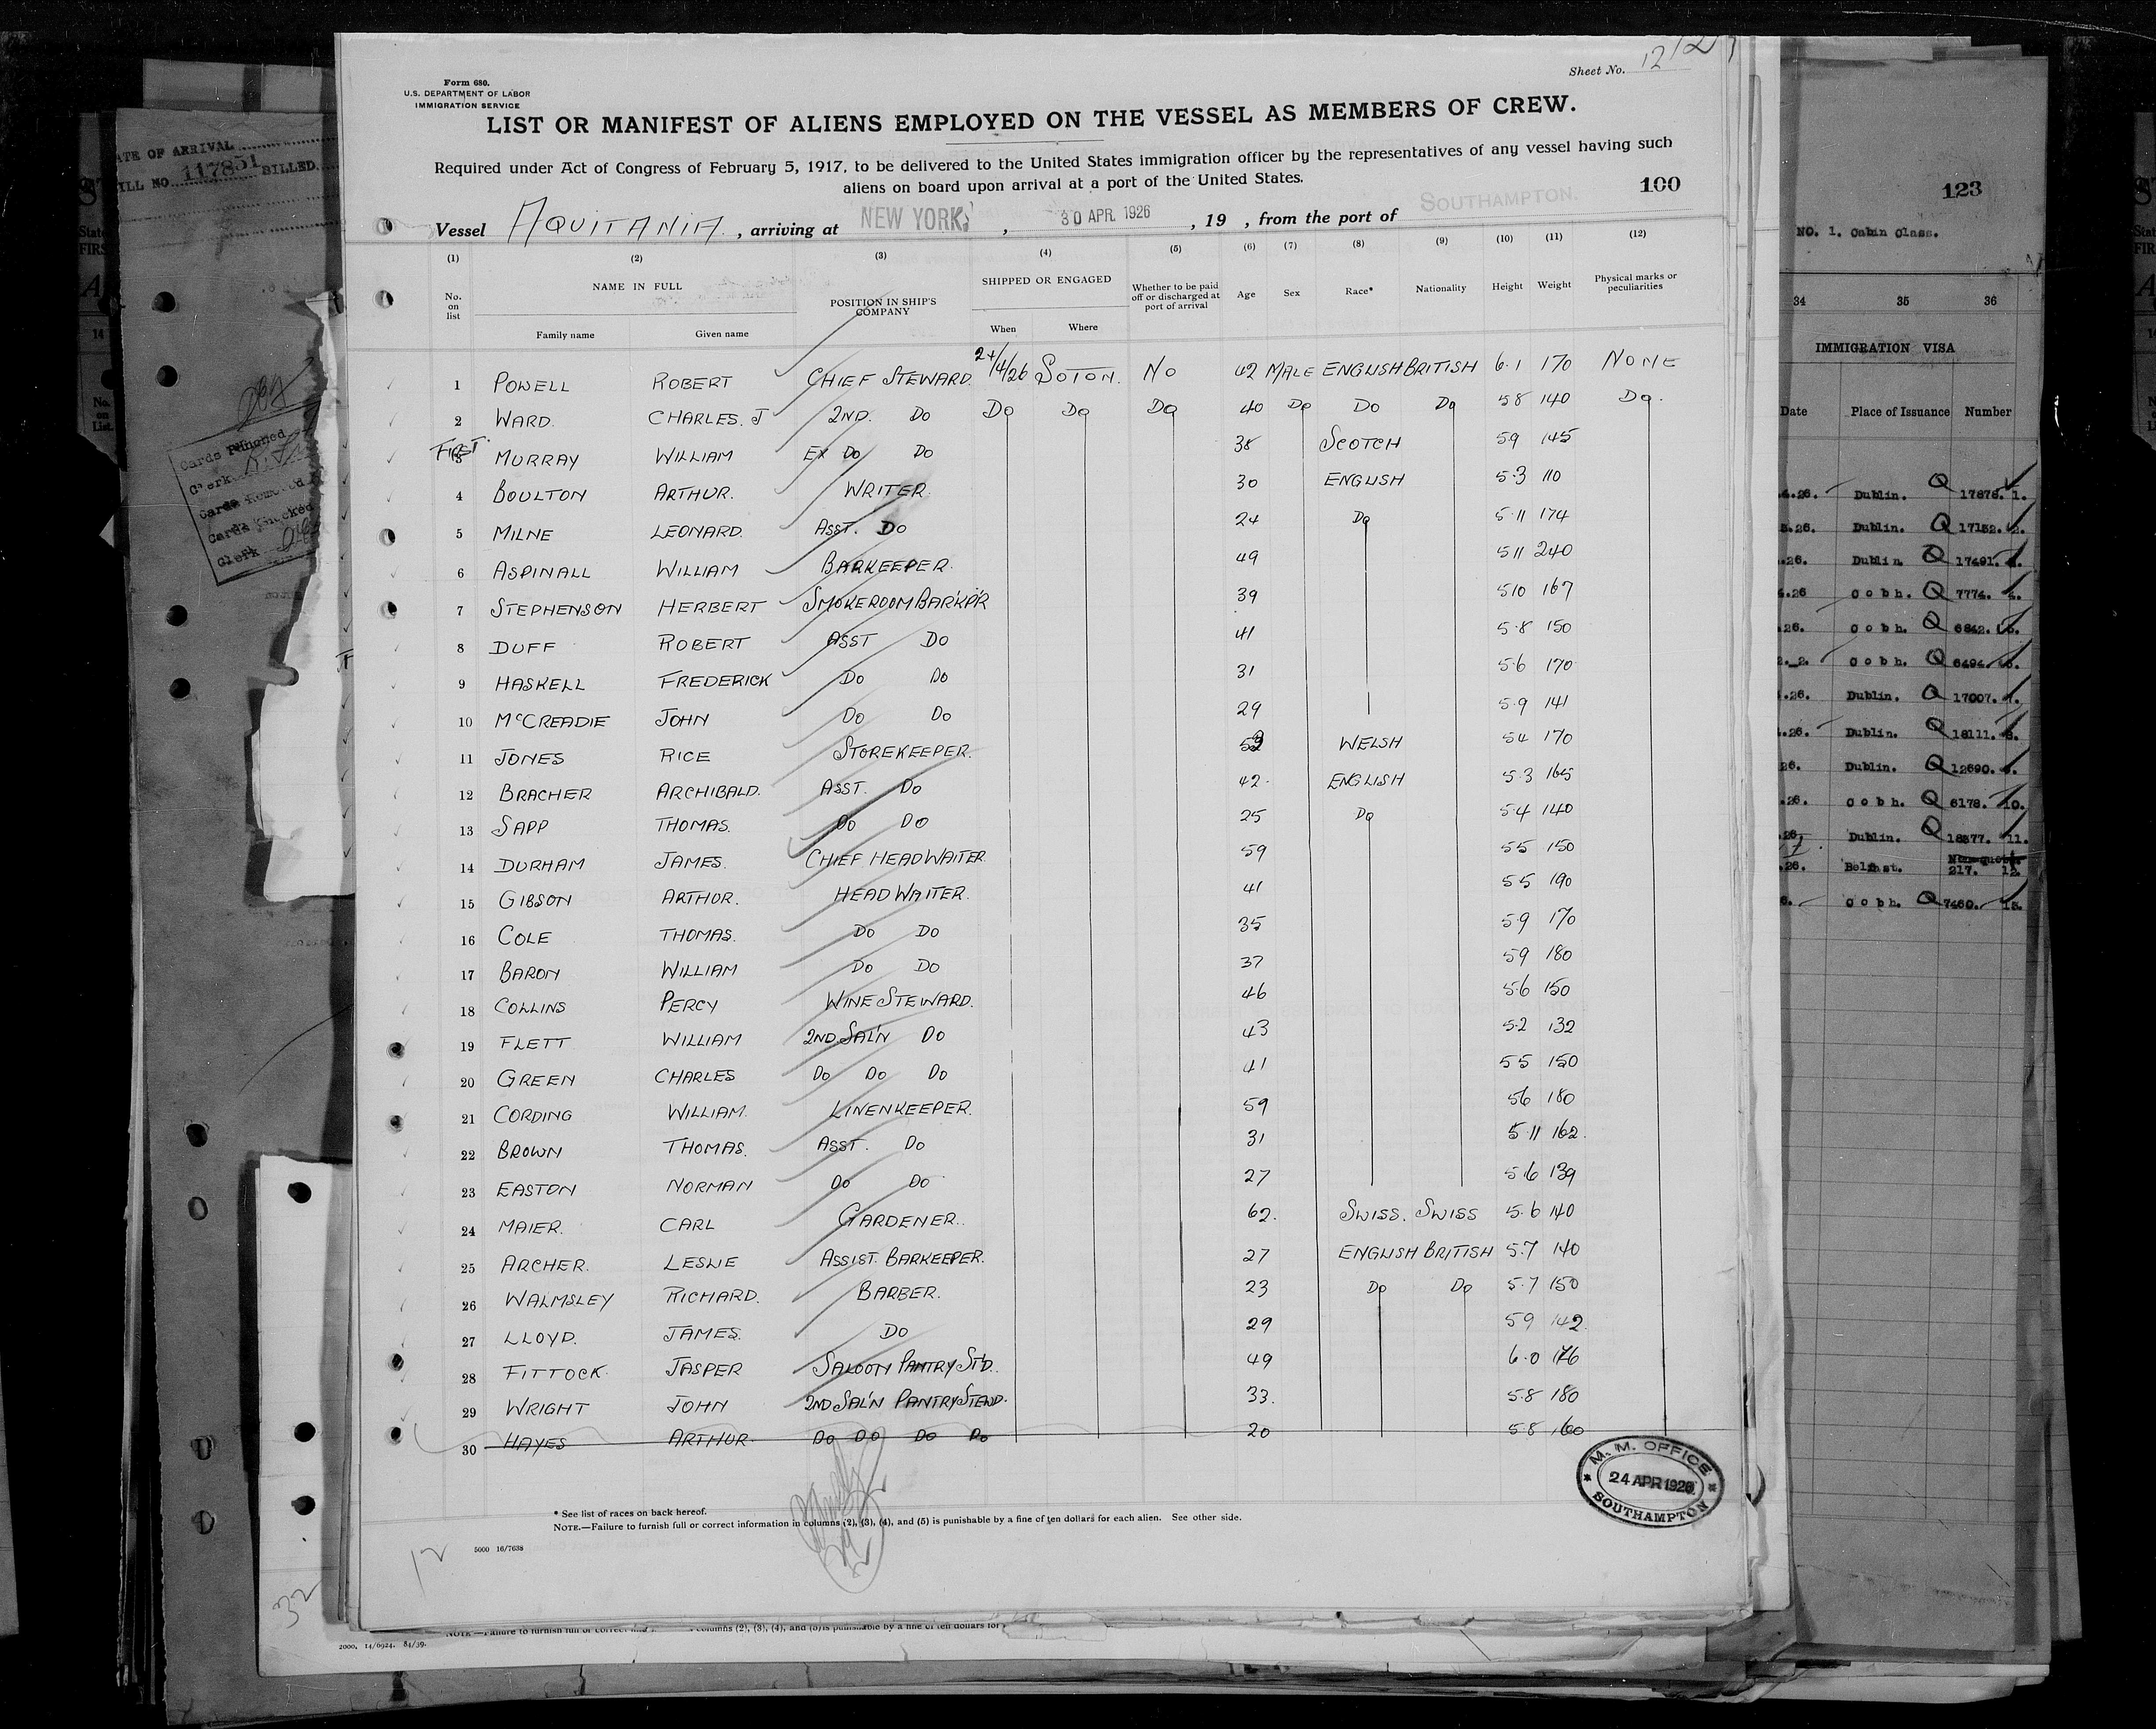 Form 680.
U.S. DEPARTMENT OF LABOR
IMMIGRATION SERVICE
Sheet No. 12
LIST OR MANIFEST OF ALIENS EMPLOYED ON THE VESSEL AS MEMBERS OF CREW.
Required under Act of Congress of February 5, 1917, to be delivered to the United States immigration officer by the representatives of any vessel having such
aliens on board upon arrival at a port of the United States.
100
Vessel AQUITANIA, arriving at NEW YORK, 30 APR. 1926, 19 , from the port of SOUTHAMPTON.
(1) (2) (3) (4) (5) (6) (7) (8) (9) (10) (11) (12)
No. on list NAME IN FULL Family name Given name POSITION IN SHIP'S COMPANY SHIPPED OR ENGAGED When Where Whether to be paid off or discharged at port of arrival Age Sex Race* Nationality Height Weight Physical marks or peculiarities
1 POWELL ROBERT CHIEF STEWARD 24/4/26 SOTON. NO 42 MALE ENGLISH BRITISH 6.1 170 NONE
2 WARD. CHARLES. J 2ND. DO DO DO DO 40 DO DO DO 5 8 140 DO.
FIRST
3 MURRAY WILLIAM EX DO DO 38 SCOTCH 5 9 145
4 BOULTON ARTHUR. WRITER. 30 ENGLISH 5.3 110
5 MILNE LEONARD. ASST. DO 24 DO 5.11 174
6 ASPINALL WILLIAM BARKEEPER. 49 5 11 240
7 STEPHENSON HERBERT SMOKEROOM BARKP'R 39 5 10 167
8 DUFF ROBERT ASST DO 41 5.8 150
9 HASKELL FREDERICK DO DO 31 5.6 170
10 McCREADIE JOHN DO DO 29 5.9 141
11 JONES RICE STOREKEEPER. WELSH 5 4 170
12 BRACHER ARCHIBALD. ASST. DO 42. ENGLISH 5.3 165
13 SAPP THOMAS. DO DO 25 DO 5.4 140
14 DURHAM JAMES. CHIEF HEAD WAITER 59 5 5 150
15 GIBSON ARTHUR. HEAD WAITER. 41 5 5 190
16 COLE THOMAS. DO DO 35 5.9 170
17 BARON WILLIAM DO DO 37 5 9 180
18 COLLINS PERCY WINE STEWARD. 46 5.6 150
19 FLETT WILLIAM 2ND SAL'N DO 43 5.2 132
20 GREEN CHARLES DO DO DO 41 5 5 150
21 CORDING WILLIAM. LINENKEEPER. 59 5 6 180
22 BROWN THOMAS. ASST. DO 31 5.11 162.
23 EASTON NORMAN DO DO 27 5.6 139
24 MAIER. CARL GARDENER.. 62. SWISS. SWISS 5.6 140
25 ARCHER. LESLIE ASSIST. BARKEEPER. 27 ENGLISH BRITISH 5.7 140
26 WALMSLEY RICHARD. BARBER. 23 DO DO 5.7 150
27 LLOYD. JAMES. DO 29 5 9 142.
28 FITTOCK. JASPER SALOON PANTRY ST'D. 49 6.0 176
29 WRIGHT JOHN 2ND SAL'N PANTRY STEWD. 33. 5.8 180
30 HAYES ARTHUR. DO DO DO DO 20 5 8 160
M. M. OFFICE
24 APR 1926
SOUTHAMPTON
* See list of races on back hereof.
NOTE.—Failure to furnish full or correct information in columns (2), (3), (4), and (5) is punishable by a fine of ten dollars for each alien. See other side.
5000 16/7638
12
32
2000. 14/6924. 84/39.
DATE OF ARRIVAL
BILL NO. 117851 BILLED
Cards Punched
Clerk
Cards Removed
Cards Checked
Clerk
123
NO. 1. Cabin Class.
34 35 36
IMMIGRATION VISA
Date Place of Issuance Number
.4.26. Dublin. Q 17878. 1.
.26. Dublin. Q 17152. 2.
.26. Dublin. Q 17491.
.26 Cobh. Q 7774. 4.
.26. Cobh. Q 6842.
Cobh. Q 6494.
.26. Dublin. Q 17007.
.26. Dublin. Q 18111.
26. Dublin. Q 12690.
.26. Cobh. Q 6178. 10.
.26. Dublin. Q 18377. 11.
.26. Belfast. 217. 12.
Cobh. Q 7460. 13.